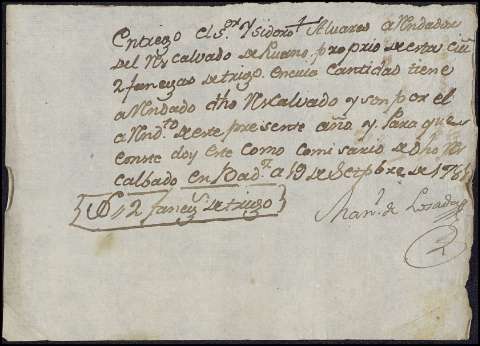 Entrego el S.or Ysidoro Alvares a Rendador
del Rs calvado de proprio de esta ciu
2 fanegas de trigo. en cuia cantidad tiene
a Rendado dho Rs Calvado y son por el
a Rend.to de este presente año y para que
conste doy este como comisario de dho Rs
calbado en Bad.z a 19 de Setpbre de 178
Son 2 faneg.s de trigo
Man.l de Losada
2